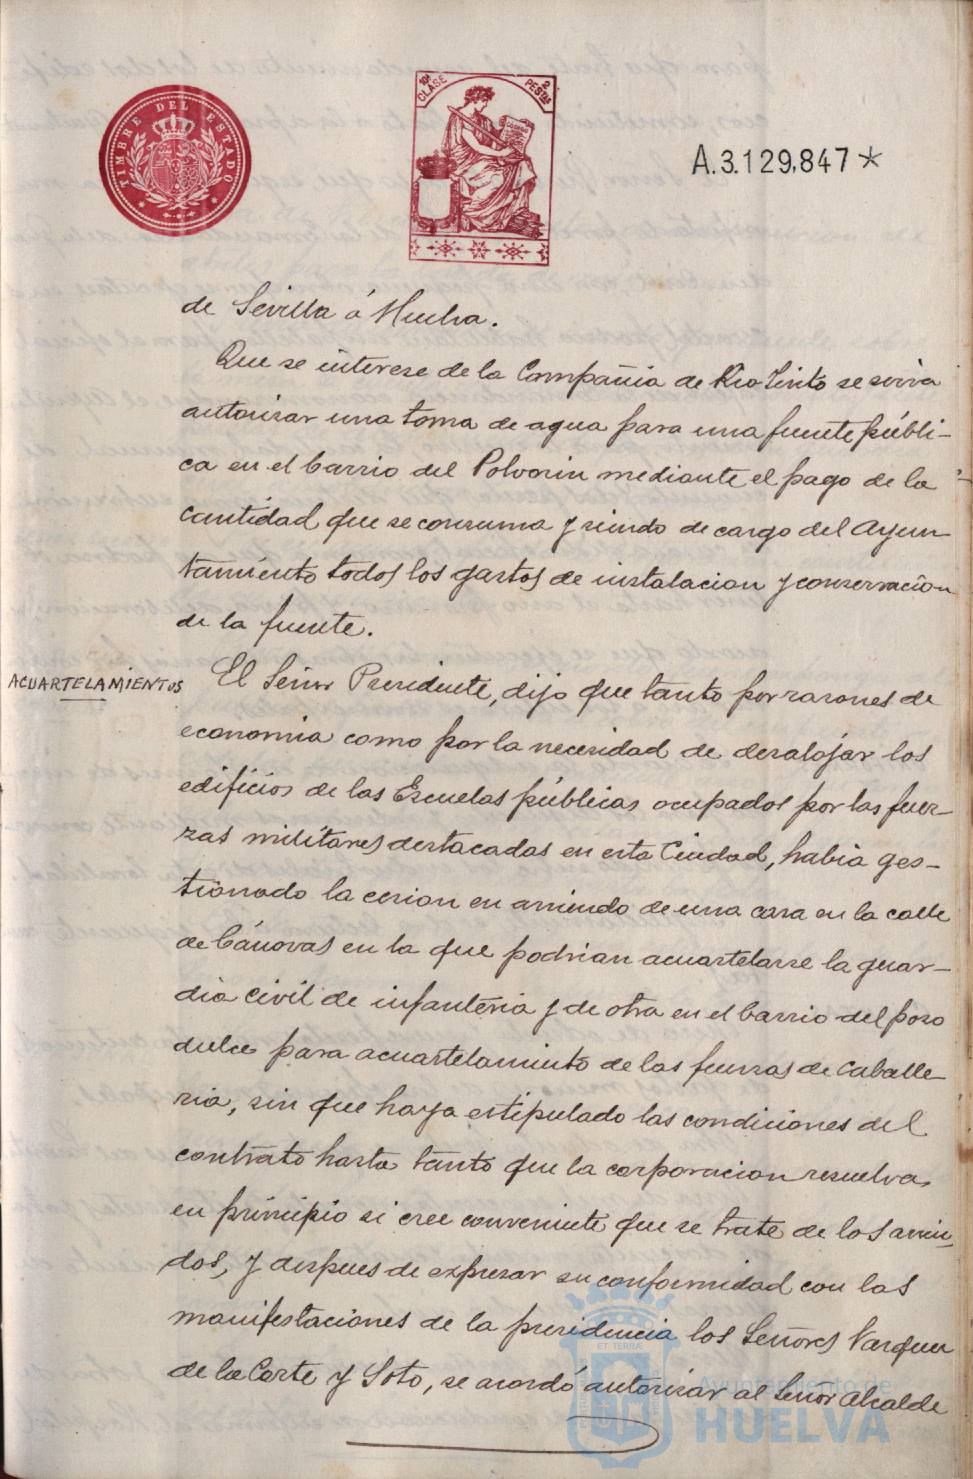 TIMBRE DEL ESTADO
10ª CLASE
2 PESTAS
A.3.129,847*
de Sevilla á Huelva.
Que se interese de la Compañia de Rio Tinto se sirva
autorizar una toma de agua para una fuente públi-
ca en el barrio del Polvorin mediante el pago de la
cantidad que se consuma y siendo de cargo del Ayun
tamiento todos los gastos de instalacion y conservacion
de la fuente.
ACUARTELAMIENTOS
El Señor Presidente, dijo que tanto por razones de
economia como por la necesidad de desalojar los
edificios de las Escuelas públicas ocupados por las fuer-
zas militares destacadas en esta Ciudad, habia ges-
tionado la cesion en arriendo de una casa en la calle
de Cánovas en la que podrian acuartelarse la guar-
dia civil de infanteria y de otra en el barrio del pozo
dulce para acuartelamiento de las fuerzas de Caballe-
ria, sin que haya estipulado las condiciones del
contrato hasta tanto que la corporacion resuelva
en principio si cree conveniente que se trate de los arrien
dos, y despues de expresar su conformidad con las
manifestaciones de la presidencia los Señores Vazquez
de la Corte y Soto, se acordó autorizar al Señor Alcalde
ET TERRA
Ayuntamiento de
HUELVA